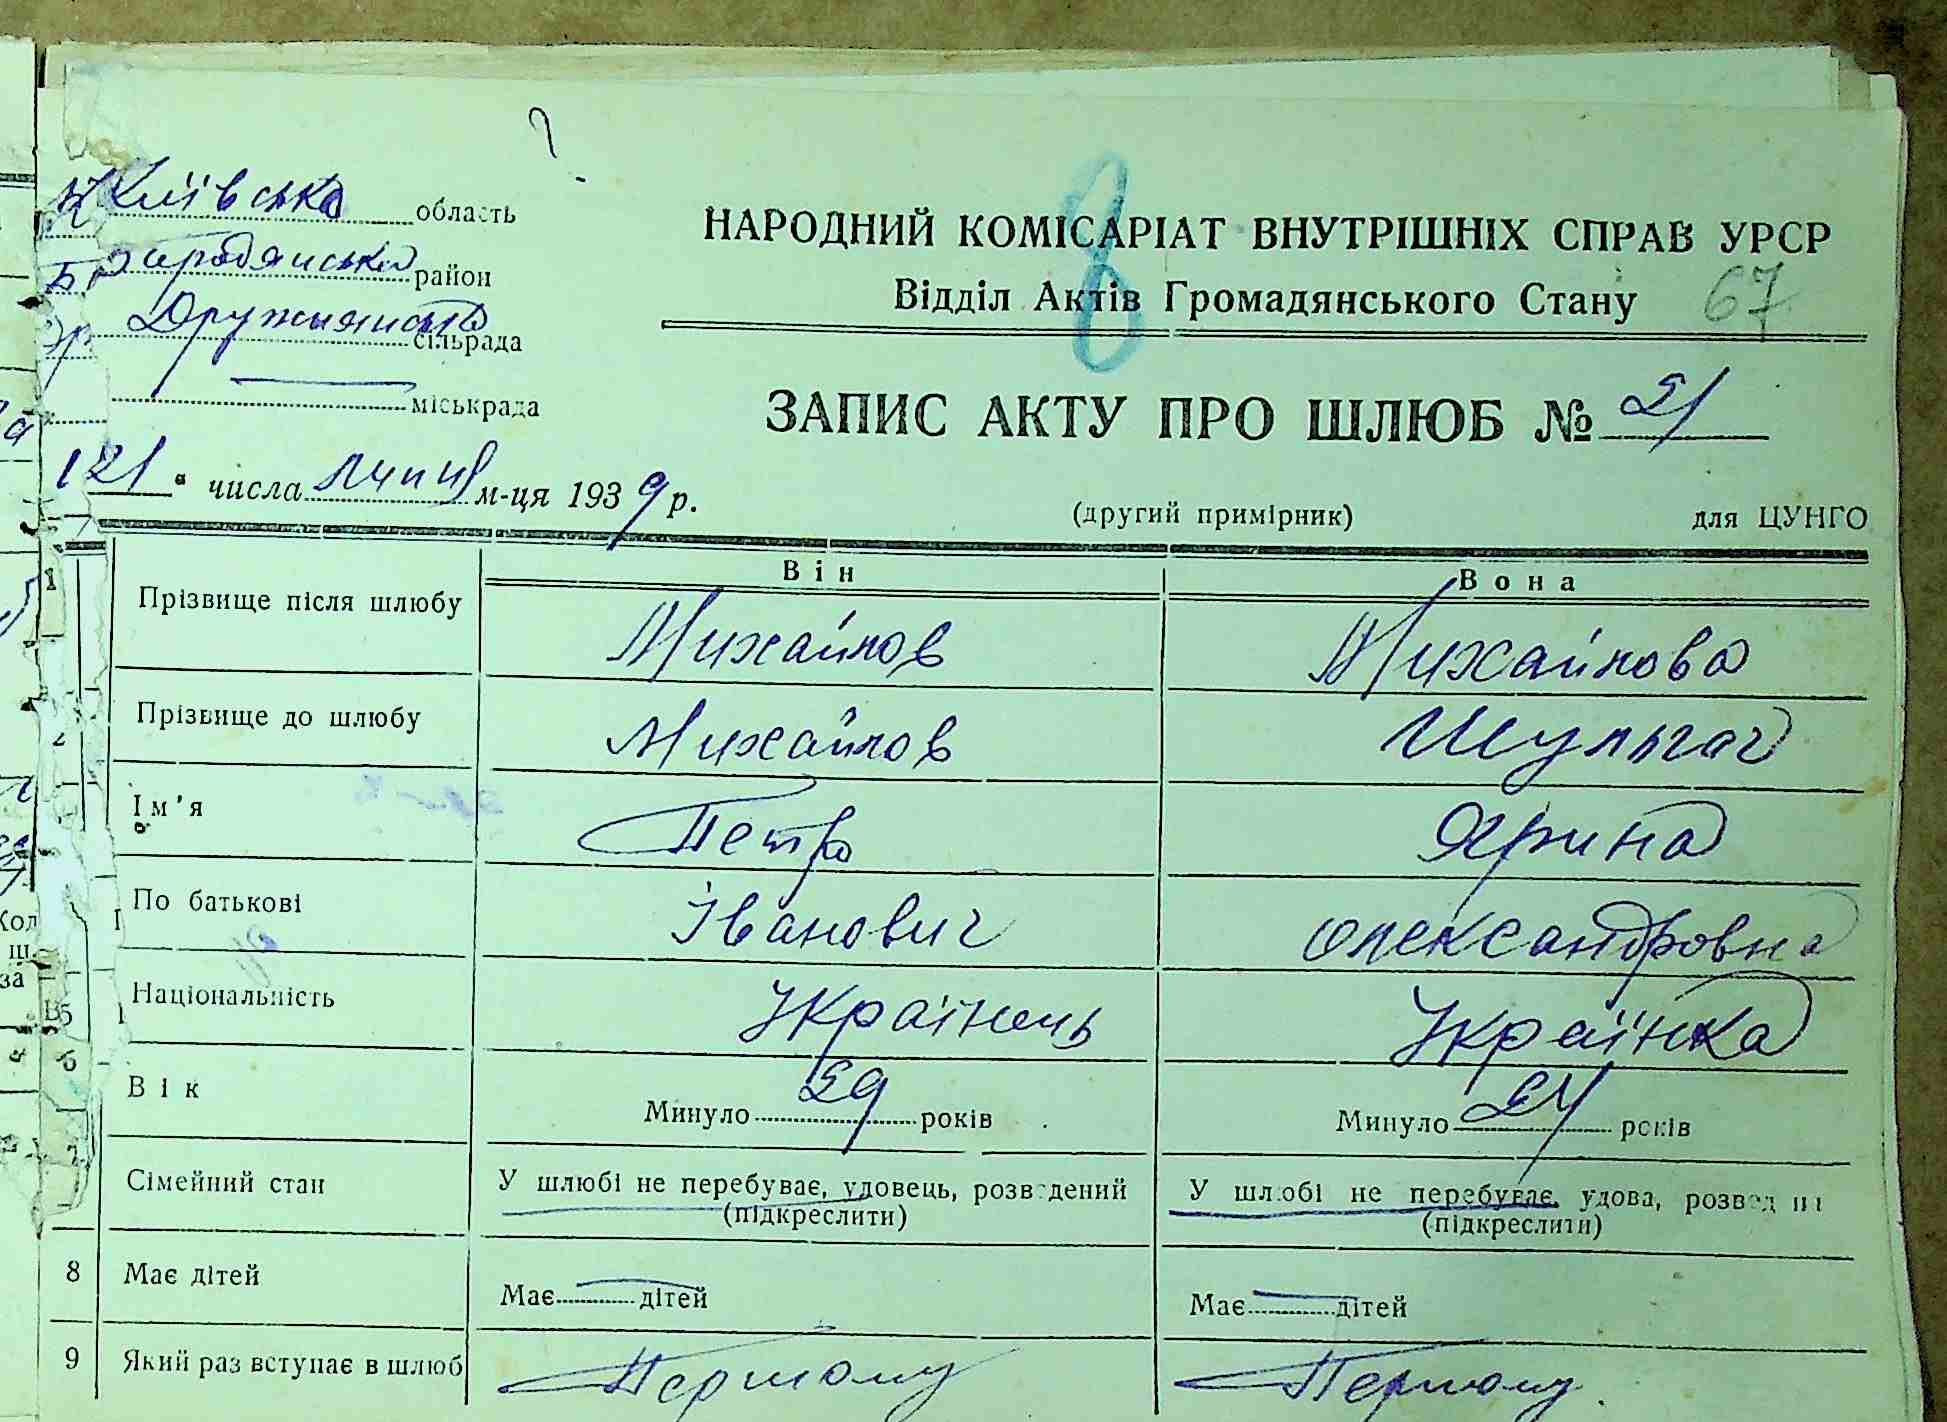 ?
Київська область
Бородянський район
Дружнянська сільрада
міськрада
НАРОДНИЙ КОМІСАРІАТ ВНУТРІШНІХ СПРАВ УРСР
Відділ Актів Громадянського Стану 67
8
ЗАПИС АКТУ ПРО ШЛЮБ № 21
21 числа липня м-ця 1939 р.
(другий примірник) для ЦУНГО
Він Вона
1 Прізвище після шлюбу Михайлов Михайлова
2 Прізвище до шлюбу Михайлов Шульгач
Ім'я Петро Ярина
По батькові Іванович Олександровна
5 Національність Українець Українка
6 Вік Минуло 29 років Минуло 24 років
7 Сімейний стан У шлюбі не перебуває, удовець, розведений У шлюбі не перебуває, удова, розвед
(підкреслити) (підкреслити)
8 Має дітей Має — дітей Має — дітей
9 Який раз вступає в шлюб Першому Першому